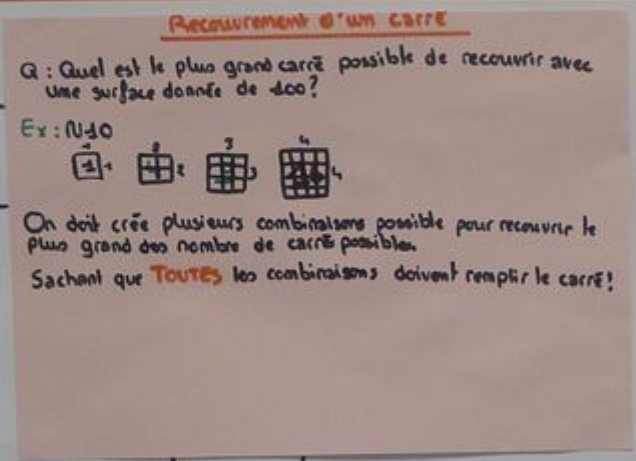 Recouvrement d'un carré
Q : Quel est le plus grand carré possible de recouvrir avec
une surface donnée de 100?
Ex : N=10
1 2 3 4
1 1 2 3 4
On doit crée plusieurs combinaisons possible pour recouvrir le
plus grand des nombre de carré possibles.
Sachant que TOUTES les combinaisons doivent remplir le carré!